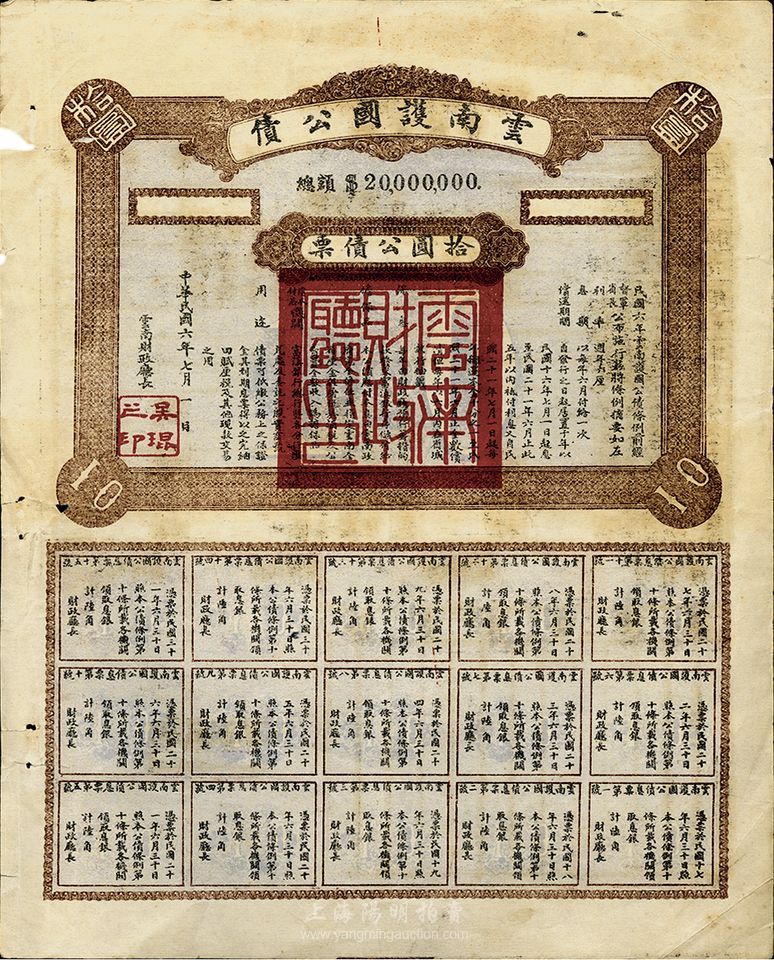 雲南護國公債
總額 $20,000,000.
拾圓公債票
拾圓
拾圓
民國六年雲南護國公債條例前經
督軍
省長
公布施行茲將條例摘要如左
利率 週年六厘
息期 以每年六月付給一次
償還期間 自發行之日起居置十年以
民國十六年七月一日起息
至民國二十一年六月止此
五年以內祗付利息又自民
國二十一年七月一日起每
用途
債票可依繳公務上之保證
金其到期息票得以之完納
田賦厘稅及其他現款交易
之用
中華民國六年七月一日
雲南財政廳長
吳琨之印
10
10
雲南護國公債息票第十一號
憑票於民國二十
七年六月三十日
照本公債條例第
十條所載各機關
領取息銀
計陸角
財政廳長
雲南護國公債息票第十二號
憑票於民國二十
八年六月三十日
照本公債條例第
十條所載各機關
領取息銀
計陸角
財政廳長
雲南護國公債息票第十三號
憑票於民國二十
九年六月三十日
照本公債條例第
十條所載各機關
領取息銀
計陸角
財政廳長
雲南護國公債息票第十四號
憑票於民國三十
年六月三十日照
本公債條例第十
條所載各機關領
取息銀
計陸角
財政廳長
雲南護國公債息票第十五號
憑票於民國三十
一年六月三十日
照本公債條例第
十條所載各機關
領取息銀
計陸角
財政廳長
雲南護國公債息票第六號
憑票於民國二十
二年六月三十日
照本公債條例第
十條所載各機關
領取息銀
計陸角
財政廳長
雲南護國公債息票第七號
憑票於民國二十
三年六月三十日
照本公債條例第
十條所載各機關
領取息銀
計陸角
財政廳長
雲南護國公債息票第八號
憑票於民國二十
四年六月三十日
照本公債條例第
十條所載各機關
領取息銀
計陸角
財政廳長
雲南護國公債息票第九號
憑票於民國二十
五年六月三十日
照本公債條例第
十條所載各機關
領取息銀
計陸角
財政廳長
雲南護國公債息票第十號
憑票於民國二十
六年六月三十日
照本公債條例第
十條所載各機關
領取息銀
計陸角
財政廳長
雲南護國公債息票第一號
憑票於民國十七
年六月三十日照
本公債條例第十
條所載各機關領
取息銀
計陸角
財政廳長
雲南護國公債息票第二號
憑票於民國十八
年六月三十日照
本公債條例第十
條所載各機關領
取息銀
計陸角
財政廳長
雲南護國公債息票第三號
憑票於民國十九
年六月三十日照
本公債條例第十
條所載各機關領
取息銀
計陸角
財政廳長
雲南護國公債息票第四號
憑票於民國二十
年六月三十日照
本公債條例第十
條所載各機關領
取息銀
計陸角
財政廳長
雲南護國公債息票第五號
憑票於民國二十
一年六月三十日
照本公債條例第
十條所載各機關
領取息銀
計陸角
財政廳長
上海陽明拍賣
www.yangmingauction.com